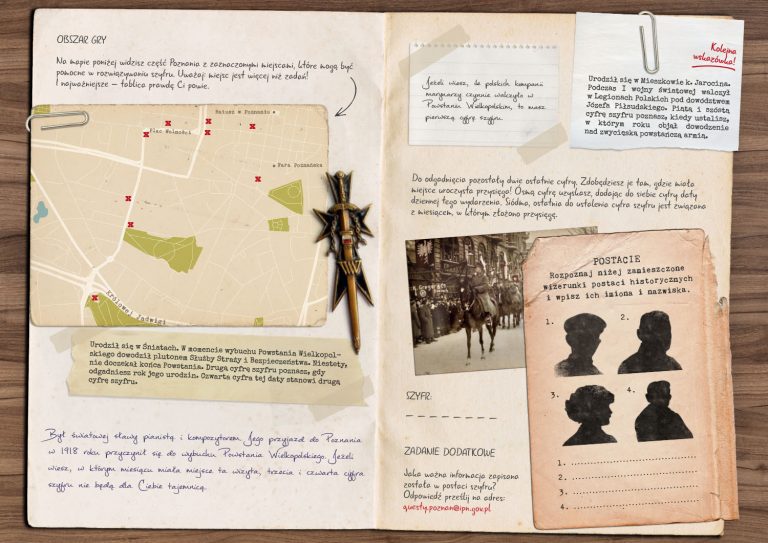 OBSZAR GRY
Na mapie poniżej widzisz część Poznania z zaznaczonymi miejscami, które mogą być
pomocne w rozwiązywaniu szyfru. Uważaj: miejsc jest więcej niż zadań!
I najważniejsze – tablica prawdę Ci powie.
Ratusz w Poznaniu
Plac Wolności
Fara Poznańska
Królowej Jadwigi
Urodził się w Śniatach. W momencie wybuchu Powstania Wielkopol-
skiego dowodził plutonem Służby Straży i Bezpieczeństwa. Niestety,
nie doczekał końca Powstania. Drugą cyfrę szyfru poznasz, gdy
odgadniesz rok jego urodzin. Czwarta cyfra tej daty stanowi drugą
cyfrę szyfru.
Był światowej sławy pianistą i kompozytorem. Jego przyjazd do Poznania
w 1918 roku przyczynił się do wybuchu Powstania Wielkopolskiego. Jeżeli
wiesz, w którym miesiącu miała miejsce ta wizyta, trzecia i czwarta cyfra
szyfru nie będą dla Ciebie tajemnicą.
Jeżeli wiesz, ile polskich kompanii
marynarzy czynnie walczyło w
Powstaniu Wielkopolskim, to masz
pierwszą cyfrę szyfru.
Kolejna
wskazówka!
Urodził się w Mieszkowie k. Jarocina.
Podczas I wojny światowej walczył
w Legionach Polskich pod dowództwem
Józefa Piłsudskiego. Piątą i szóstą
cyfrę szyfru poznasz, kiedy ustalisz,
w którym roku objął dowodzenie
nad zwycięską powstańczą armią.
Do odgadnięcia pozostały dwie ostatnie cyfry. Zdobędziesz je tam, gdzie miała
miejsce uroczysta przysięga! Ósmą cyfrę uzyskasz, dodając do siebie cyfry daty
dziennej tego wydarzenia. Siódma, ostatnia do ustalenia cyfra szyfru jest związana
z miesiącem, w którym złożono przysięgę.
POSTACIE
Rozpoznaj niżej zamieszczone
wizerunki postaci historycznych
i wpisz ich imiona i nazwiska.
1.
2.
3.
4.
1.
2.
3.
4.
SZYFR:
ZADANIE DODATKOWE
Jaka ważna informacja zapisana
została w postaci szyfru?
Odpowiedź prześlij na adres:
questy.poznan@ipn.gov.pl